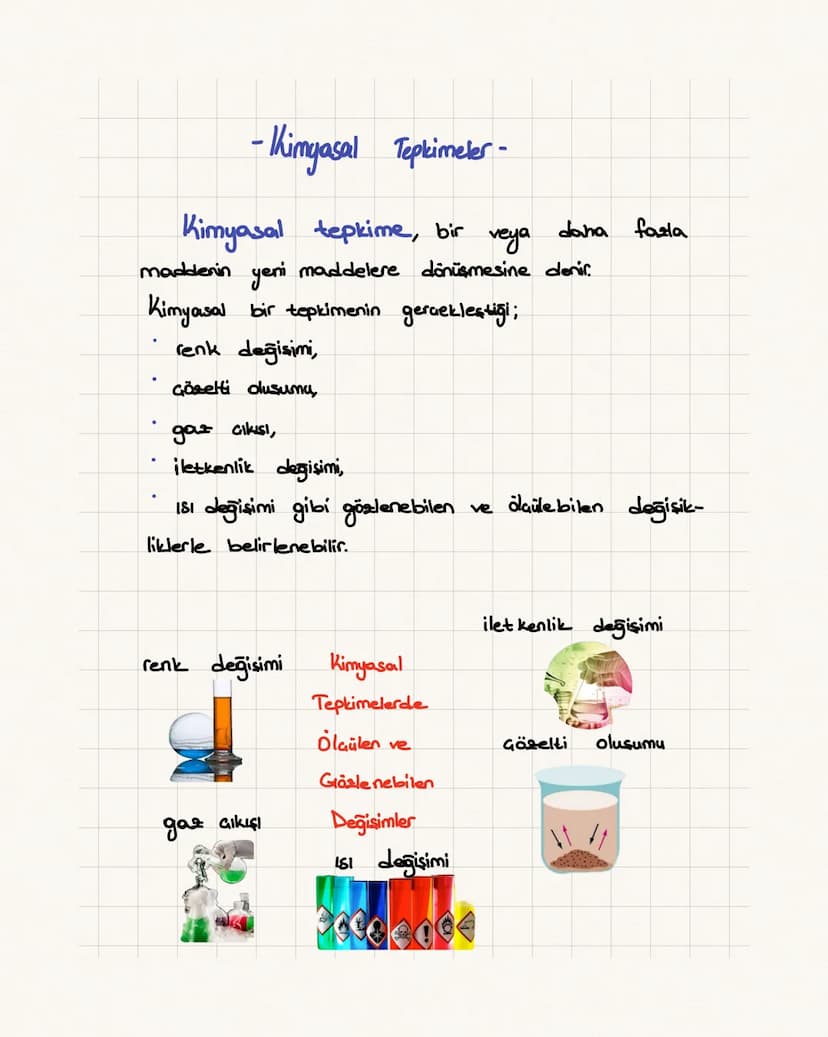 - Kimyasal Tepkimeler -
Kimyasal tepkime, bir veya daha fazla
maddenin yeni maddelere dönüşmesine denir.
Kimyasal bir tepkimenin gerçekleştiği;
• renk değişimi,
• çözelti oluşumu,
• gaz çıkışı,
• iletkenlik değişimi,
• ısı değişimi gibi gözlenebilen ve ölçülebilen değişik-
liklerle belirlenebilir.
iletkenlik değişimi
renk değişimi
Kimyasal
Tepkimelerde
Ölçülen ve
Gözlenebilen
Değişimler
çözelti oluşumu
gaz çıkışı
ısı değişimi